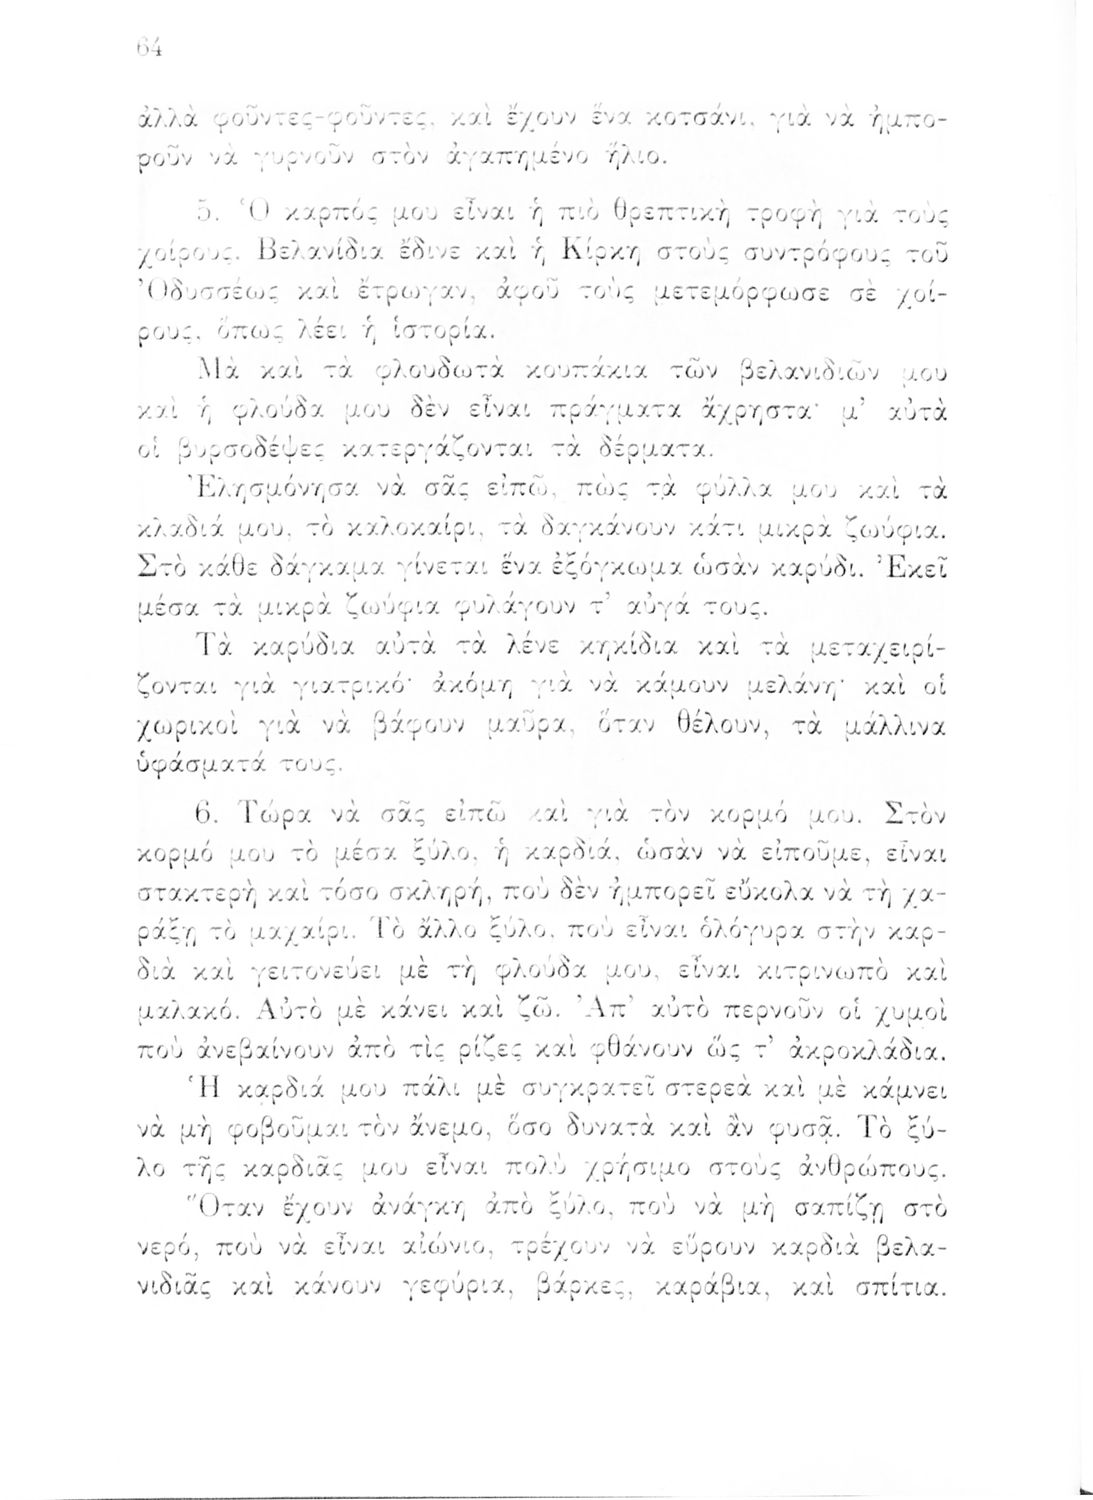 64
ἀλλὰ φοῦντες-φοῦντες, καὶ ἔχουν ἕνα κοτσάνι, γιὰ νὰ ἠμπο-
ροῦν νὰ γυρνοῦν στὸν ἀγαπημένο ἥλιο.
5. Ὁ καρπός μου εἶναι ἡ πιὸ θρεπτικὴ τροφὴ γιὰ τοὺς
χοίρους. Βελανίδια ἔδινε καὶ ἡ Κίρκη στοὺς συντρόφους τοῦ
Ὀδυσσέως καὶ ἔτρωγαν, ἀφοῦ τοὺς μετεμόρφωσε σὲ χοί-
ρους, ὅπως λέει ἡ ἱστορία.
Μὰ καὶ τὰ φλουδωτὰ κουπάκια τῶν βελανιδιῶν μου
καὶ ἡ φλούδα μου δὲν εἶναι πράγματα ἄχρηστα· μ’ αὐτὰ
οἱ βυρσοδέψες κατεργάζονται τὰ δέρματα.
Ἐλησμόνησα νὰ σᾶς εἰπῶ, πὼς τὰ φύλλα μου καὶ τὰ
κλαδιά μου, τὸ καλοκαίρι, τὰ δαγκάνουν κάτι μικρὰ ζωύφια.
Στὸ κάθε δάγκαμα γίνεται ἕνα ἐξόγκωμα ὡσὰν καρύδι. Ἐκεῖ
μέσα τὰ μικρὰ ζωύφια φυλάγουν τ’ αὐγά τους.
Τὰ καρύδια αὐτὰ τὰ λένε κηκίδια καὶ τὰ μεταχειρί-
ζονται γιὰ γιατρικό· ἀκόμη γιὰ νὰ κάμουν μελάνη· καὶ οἱ
χωρικοὶ γιὰ νὰ βάφουν μαῦρα, ὅταν θέλουν, τὰ μάλλινα
ὑφάσματά τους.
6. Τώρα νὰ σᾶς εἰπῶ καὶ γιὰ τὸν κορμό μου. Στὸν
κορμό μου τὸ μέσα ξύλο, ἡ καρδιά, ὡσὰν νὰ εἰποῦμε, εἶναι
στακτερὴ καὶ τόσο σκληρή, ποὺ δὲν ἠμπορεῖ εὔκολα νὰ τὴ χα-
ράξῃ τὸ μαχαίρι. Τὸ ἄλλο ξύλο, ποὺ εἶναι ὁλόγυρα στὴν καρ-
διὰ καὶ γειτονεύει μὲ τὴ φλούδα μου, εἶναι κιτρινωπὸ καὶ
μαλακό. Αὐτὸ μὲ κάνει καὶ ζῶ. Ἀπ’ αὐτὸ περνοῦν οἱ χυμοὶ
ποὺ ἀνεβαίνουν ἀπὸ τὶς ρίζες καὶ φθάνουν ὣς τ’ ἀκροκλάδια.
Ἡ καρδιά μου πάλι μὲ συγκρατεῖ στερεὰ καὶ μὲ κάμνει
νὰ μὴ φοβοῦμαι τὸν ἄνεμο, ὅσο δυνατὰ καὶ ἂν φυσᾷ. Τὸ ξύ-
λο τῆς καρδιᾶς μου εἶναι πολὺ χρήσιμο στοὺς ἀνθρώπους.
Ὅταν ἔχουν ἀνάγκη ἀπὸ ξύλο, ποὺ νὰ μὴ σαπίζῃ στὸ
νερό, ποὺ νὰ εἶναι αἰώνιο, τρέχουν νὰ εὕρουν καρδιὰ βελα-
νιδιᾶς καὶ κάνουν γεφύρια, βάρκες, καράβια, καὶ σπίτια.